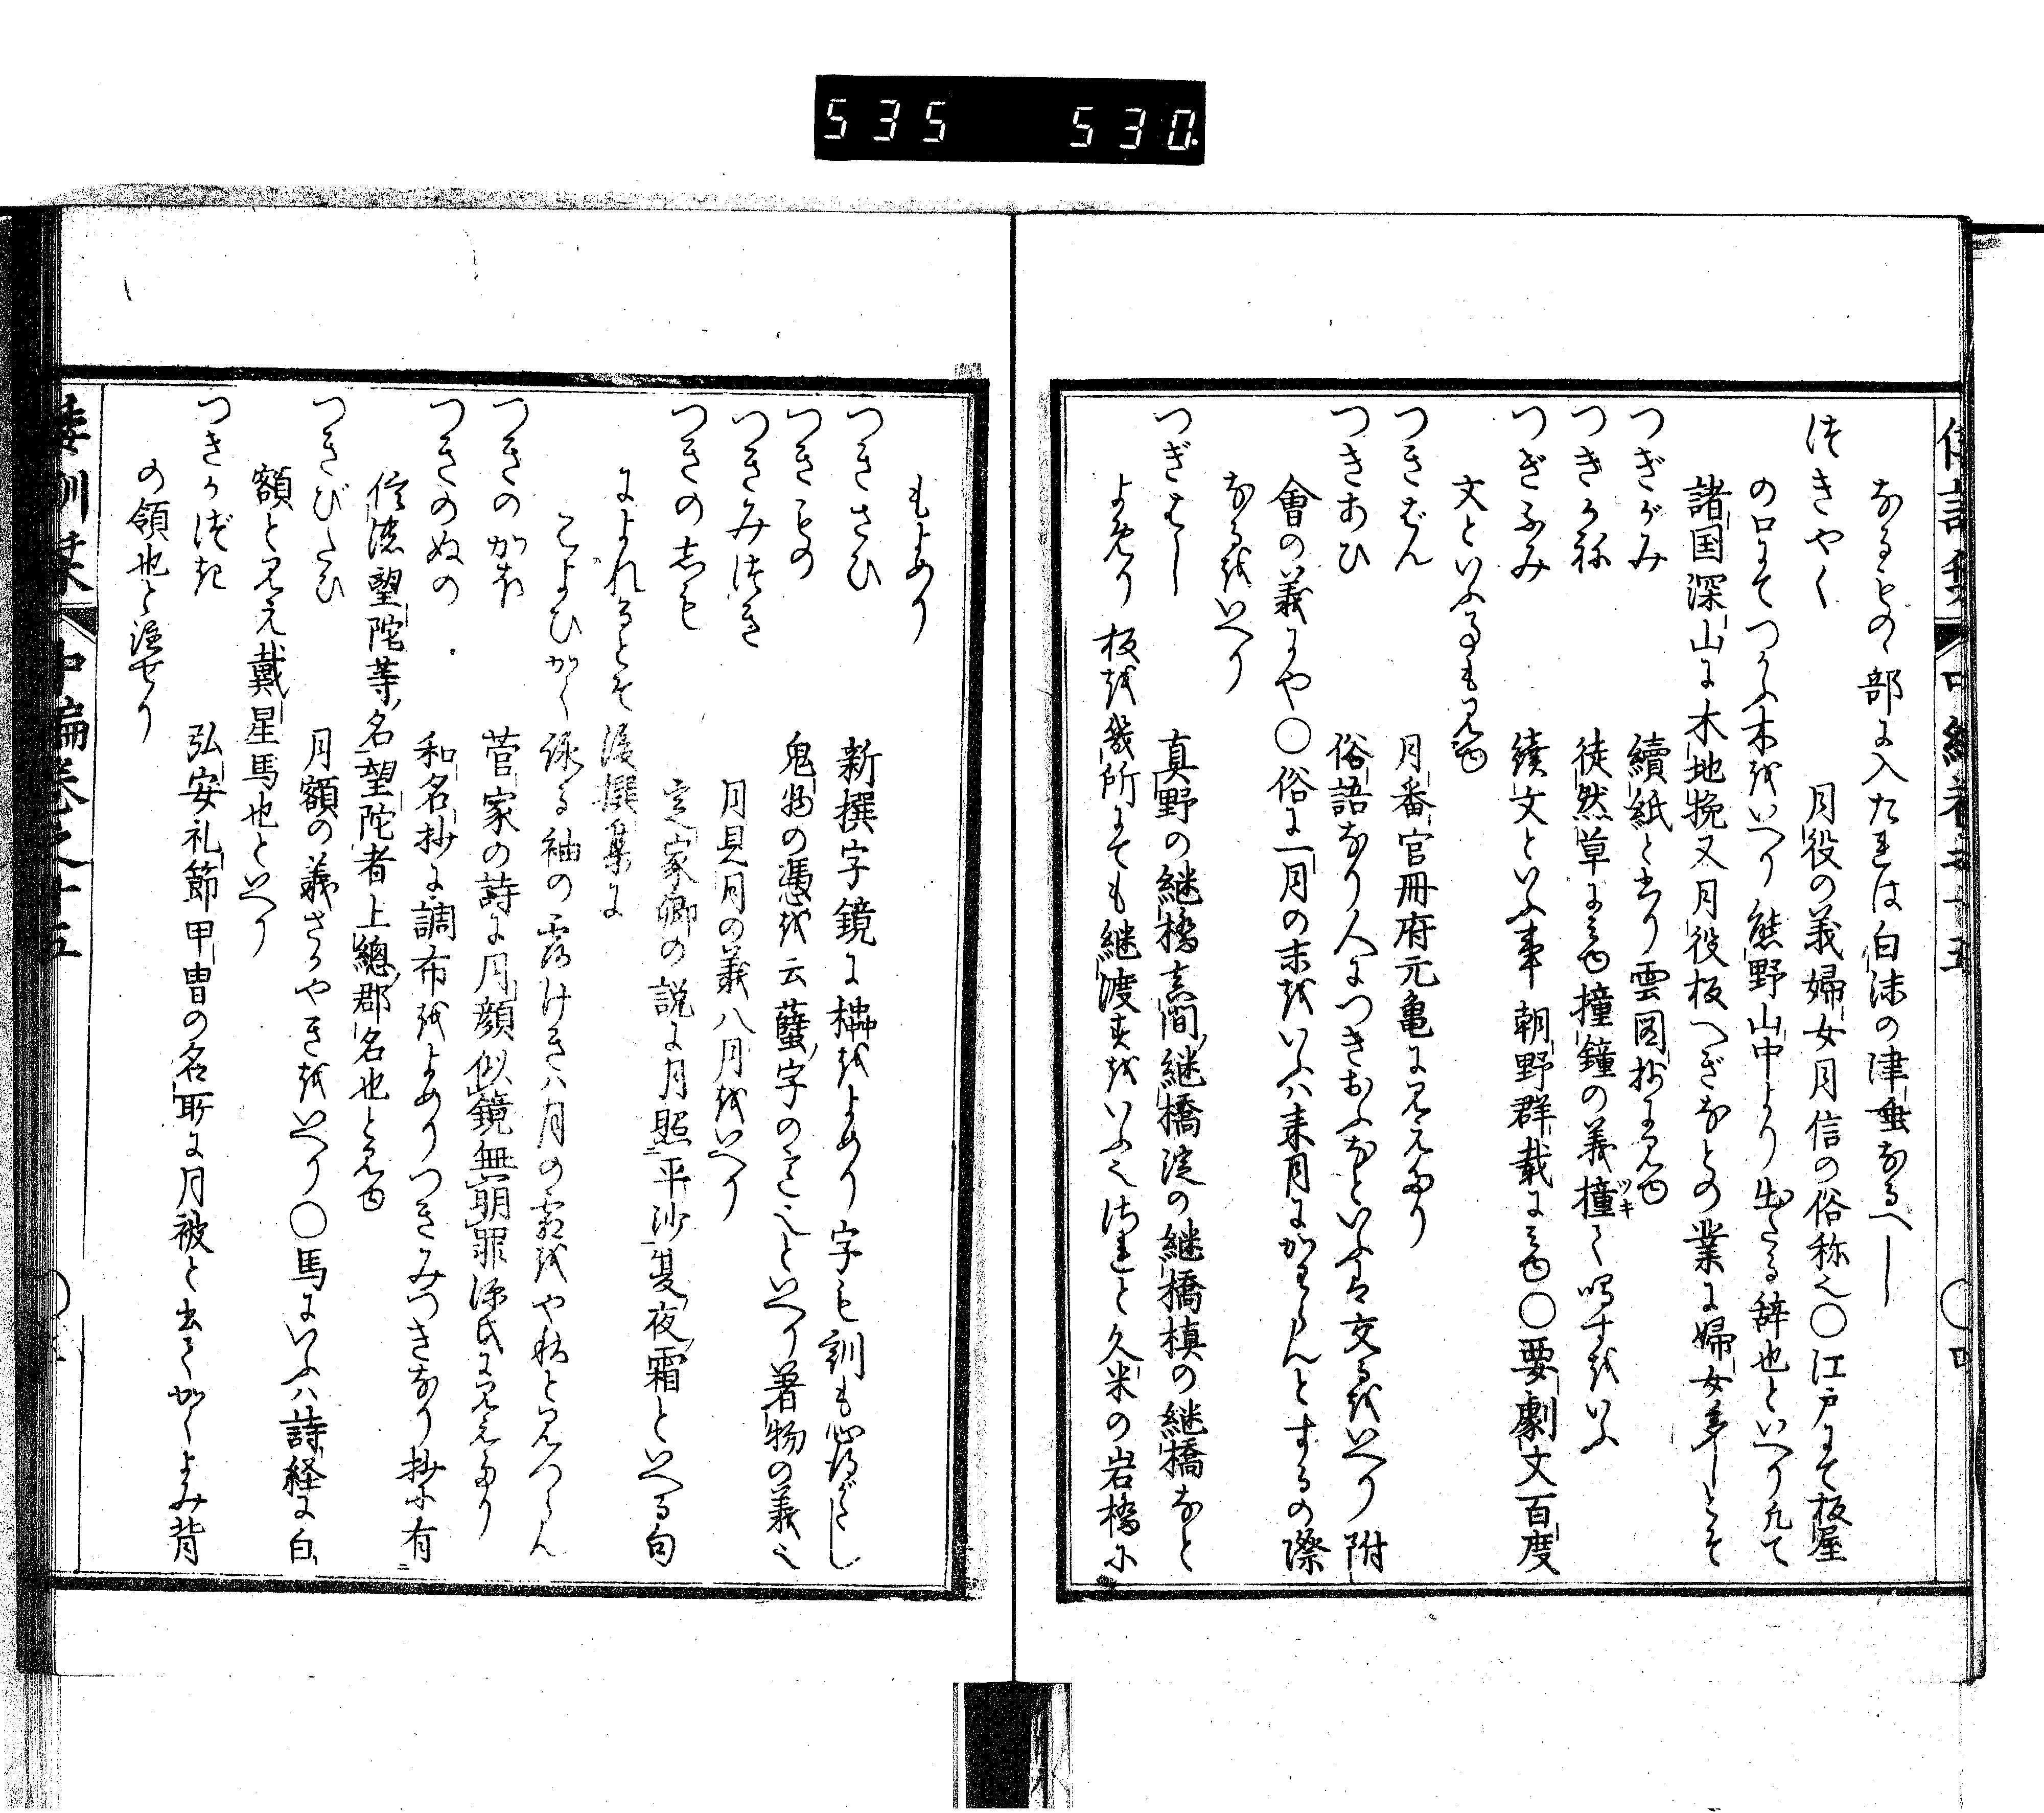 535 530
なるもの部に入たれは白沫の津垂なるへし
つきやく 月役の義婦女月信の俗称也〇江戸にて板屋
の口にてつかふ木をいへり熊野山中より出たる辞也といへり凡て
諸国深山に木地挽又月役板へぎなとの業に婦女
つぎがみ 續紙と書り雲図抄に見ゆ
つきがね 徒然草にみゆ撞鐘の義撞て鳴すをいふ
つぎふみ 續文といふ事朝野群載にみゆ〇要劇文百度
文といふるも見ゆ
つきばん 月番官冊府元亀に見えたり
つきあひ 俗語なり人につきあふなといふは交るをいへり附
會の義にや〇俗に一月の末をいふハ来月にかゝらんとするの際
なるをいへり
つぎはし 真野の継橋真間継橋淀の継橋槙の継橋なと
よめり板を幾所にても継渡すをいふ也されと久米の岩橋に
もよめり
つきさひ 新撰字鏡に をよめり字も訓も心得がたし
つきもの 鬼物の憑を云蠥字のこゝろ也といへり著物の義也
つきみつき 月見月の義八月をいへり
つきのしも 定家卿の説に月照平沙夏夜霜といへる句
によれるとそ後撰集に
こよひかく詠る袖の露けきハ月の霜をや秋と見つらん
つきのかほ 菅家の詩に月顔似鏡無明罪源氏に見えたり
つきのぬの 和名抄に調布をよめりつきみつきなり抄に有
信濃望陀等名望陀者上總郡名也と見ゆ
つきびたひ 月額の義さかやきをいへり〇馬にいふハ詩経に白
額と見え戴星馬也といへり
つきかづき 弘安礼節甲冑の名所に月被と書てかくよみ背
の領也と注せり
倭訓栞 中編巻之十五